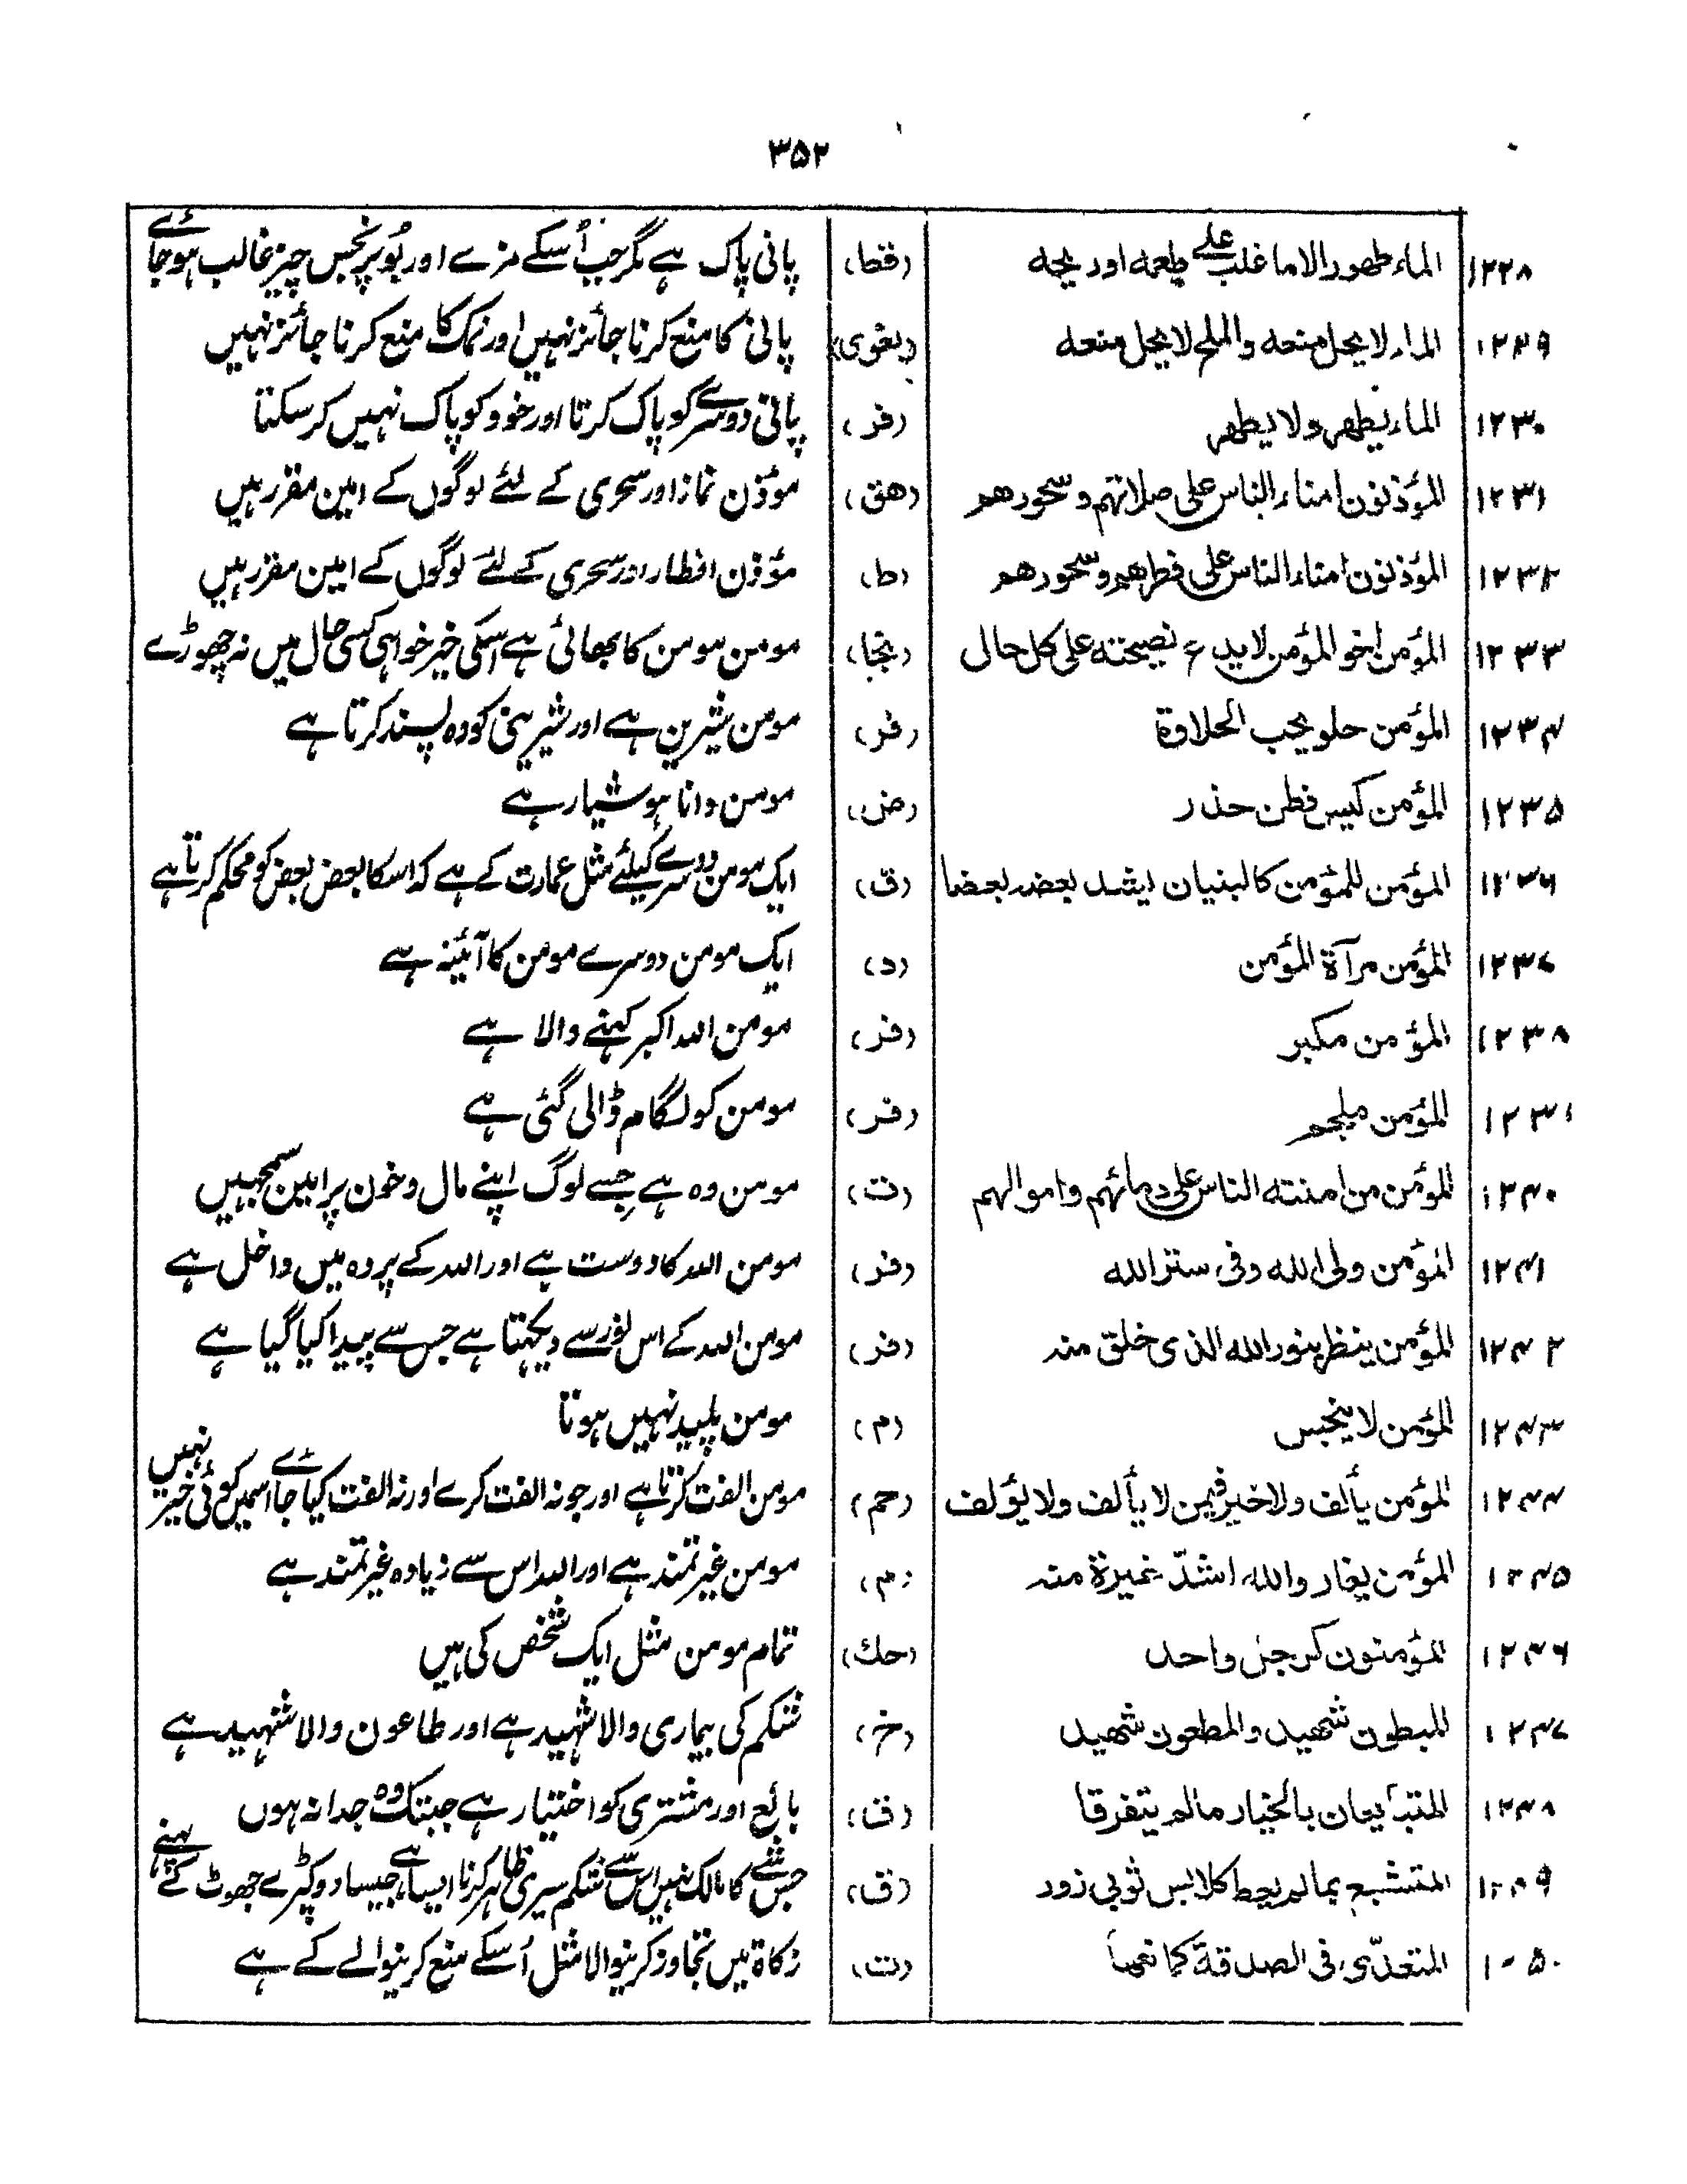 ۳۵۲
۱۲۲۸ الماء طهور الا ما غلب علے طعمه او ريحه (قط) پانی پاک ہے مگر جب اُسکے مزے اور بُو پر نجس چیز غالب ہو جائے
۱۲۲۹ الماء لا يحل منعه والملح لا يحل منعه (بغوی) پانی کا منع کرنا جائز نہیں اور نمک کا منع کرنا جائز نہیں
۱۲۳۰ الماء يطهر ولا يطهر (فر) پانی دوسرے کو پاک کرتا اور خود کو پاک نہیں کر سکتا
۱۲۳۱ المؤذنون امناء الناس على صلاتهم وسحورهم (هق) موذن نماز اور سحری کے لئے لوگوں کے امین مقرر ہیں
۱۲۳۲ المؤذنون امناء الناس على فطرهم وسحورهم (ط) موذن افطار اور سحری کے لئے لوگوں کے امین مقرر ہیں
۱۲۳۳ المؤمن اخو المؤمن لا يدع نصيحته على كل حال (نجا) مومن مومن کا بھائی ہے اسکی خیر خواہی کسی حال میں نہ چھوڑے
۱۲۳۴ المؤمن حلو يحب الحلاوة (فر) مومن شیرین ہے اور شیرینی کو وہ پسند کرتا ہے
۱۲۳۵ المؤمن كيس فطن حذر (ض) مومن دانا ہوشیار ہے
۱۲۳۶ المؤمن للمؤمن كالبنيان يشد بعضه بعضا (ق) ایک مومن دوسرے کیلئے مثل عمارت کے ہے کہ اسکا بعض بعض کو محکم کرتا ہے
۱۲۳۷ المؤمن مرآة المؤمن (د) ایک مومن دوسرے مومن کا آئینہ ہے
۱۲۳۸ المؤمن مكبر (فر) مومن اللہ اکبر کہنے والا ہے
۱۲۳ المؤمن ملجم (فر) مومن کو لگام ڈالی گئی ہے
۱۲۴۰ المؤمن من امنته الناس على دمائهم واموالهم (ت) مومن وہ ہے جسے لوگ اپنے مال و خون پر امین سمجہیں
۱۲۴۱ المؤمن ولى الله وفى ستر الله (فر) مومن اللہ کا دوست ہے اور اللہ کے پردہ میں داخل ہے
۱۲۴۲ المؤمن ينظر بنور الله الذى خلق منه (فر) مومن اللہ کے اس نور سے دیکہتا ہے جس سے پیدا کیا گیا ہے
۱۲۴۳ المؤمن لا ينجس (م) مومن پلید نہیں ہوتا
۱۲۴۴ المؤمن يألف ولا خير فيمن لا يألف ولا يؤلف (حم) مومن الفت کرتا ہے اور جو نہ الفت کرے اور نہ الفت کیا جائے اسمیں کوئی خیر نہیں
۱۲۴۵ المؤمن يغار والله اشدّ غيرة منه (م) مومن غیرتمند ہے اور اللہ اس سے زیادہ غیرتمند ہے
۱۲۴۶ المؤمنون كرجل واحد (حك) تمام مومن مثل ایک شخص کی ہیں
۱۲۴۷ المبطون شهيد والمطعون شهيد (خ) شکم کی بیماری والا شہید ہے اور طاعون والا شہید ہے
۱۲۴۸ المتبايعان بالخيار مالم يتفرقا (ق) بائع اور مشتری کو اختیار ہے جبتک وہ جدا نہ ہوں
۱۲۴۹ المتشبع بما لم يعط كلابس ثوبى زور (ق) جس شے کا مالک نہیں اس سے شکم سیری ظاہر کرنا ایسا ہے جیسا دو کپڑے جھوٹ کے پہنے
۱۲۵۰ المتعدّى فى الصدقة كمانعها (ت) زکاة میں تجاوز کرنیوالا مثل اُسکے منع کرنیوالے کے ہے